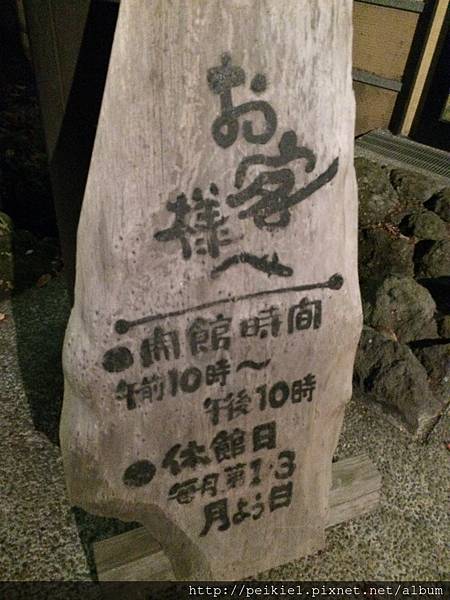 お客様へ
●開館時間
午前10時～
午後10時
●休館日
毎月第1・3
月よう日
http://peikie1.pixnet.net/album